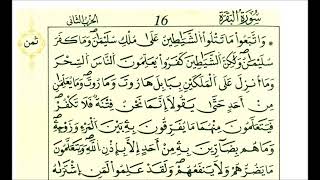 سُورَةُ الْبَقَرَةِ 16 الحزب الثاني
ثمن
* وَاتَّبَعُوا مَا تَتْلُوا الشَّيَٰطِينُ عَلَىٰ مُلْكِ سُلَيْمَٰنَ وَمَا كَفَرَ
سُلَيْمَٰنُ وَلَٰكِنِ الشَّيَٰطِينُ كَفَرُوا يُعَلِّمُونَ النَّاسَ السِّحْرَ
وَمَا أُنزِلَ عَلَى الْمَلَكَيْنِ بِبَابِلَ هَٰرُوتَ وَمَٰرُوتَ وَمَا يُعَلِّمَٰنِ
مِنْ أَحَدٍ حَتَّىٰ يَقُولَا إِنَّمَا نَحْنُ فِتْنَةٌ فَلَا تَكْفُرْ
فَيَتَعَلَّمُونَ مِنْهُمَا مَا يُفَرِّقُونَ بِهِ بَيْنَ الْمَرْءِ وَزَوْجِهِ
وَمَا هُم بِضَارِّينَ بِهِ مِنْ أَحَدٍ إِلَّا بِإِذْنِ اللَّهِ وَيَتَعَلَّمُونَ
مَا يَضُرُّهُمْ وَلَا يَنفَعُهُمْ وَلَقَدْ عَلِمُوا لَمَنِ اشْتَرَىٰهُ